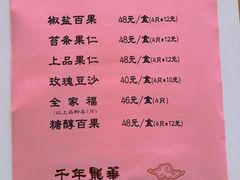 椒盐百果 48元/盒(4只*12元)
苔条果仁 48元/盒(4只*12元)
上品果仁 48元/盒(4只*12元)
玫瑰豆沙 40元/盒(4只*10元)
全家福 46元/盒(4只)
(以上品种各1只)
糖醇百果 48元/盒(4只*12元)
千年龍華